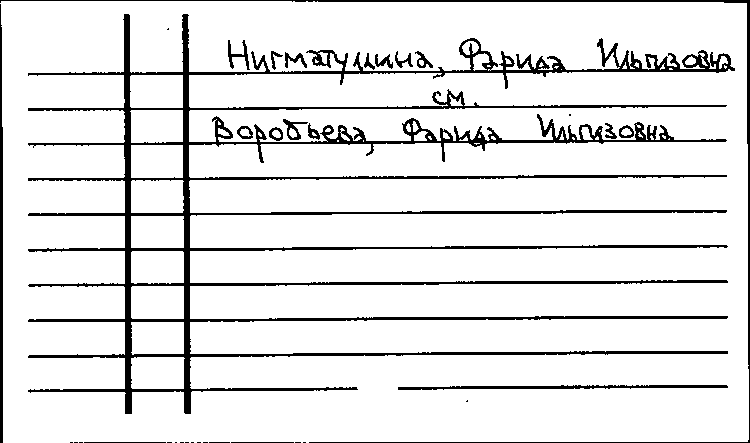 Нигматуллина, Фарида Ильгизовна
см.
Воробьева, Фарида Ильгизовна